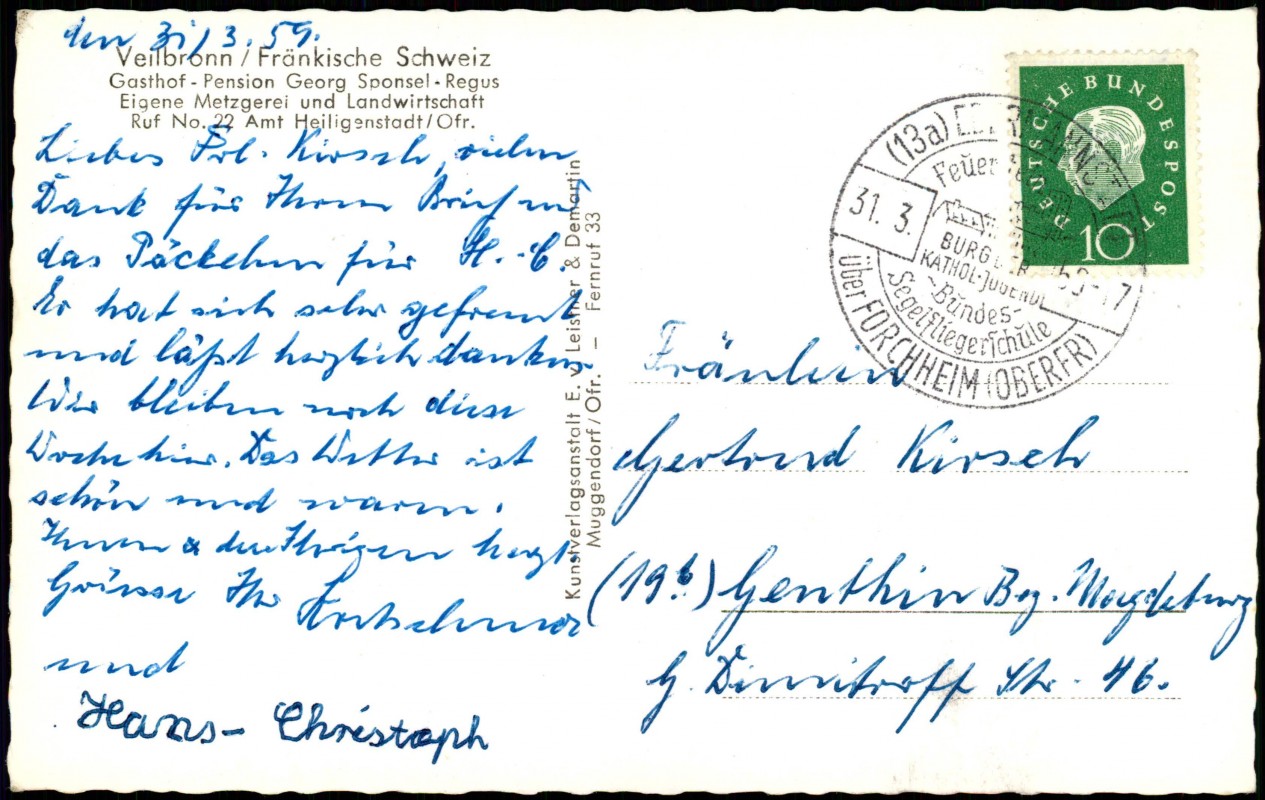 den 31/3.59.
Veilbronn / Fränkische Schweiz
Gasthof - Pension Georg Sponsel - Regus
Eigene Metzgerei und Landwirtschaft
Ruf No. 22 Amt Heiligenstadt/Ofr.
Liebes Frl. Kirsch, vielen
Dank für Ihren Brief und
das Päckchen für H.-C.
Er hat sich sehr gefreut
und läßt herzlich danken.
Wir bleiben noch diese
Woche hier. Das Wetter ist
schön und warm.
Ihnen & den Ihrigen herzl.
Grüsse Ihr
und
Hans-Christoph
Kunstverlagsanstalt E. v. Leistner & Demartin
Muggendorf/Ofr. — Fernruf 33
DEUTSCHE BUNDESPOST
10
(13a)
31. 3.
BURG
KATHOL-JUGEND
Bundes-
Segelfliegerschule
über FORCHHEIM (OBERFR)
Fräulein
Gertrud Kirsch
(19b) Genthin Bez. Magdeburg
G. Dimitroff Str. 46.